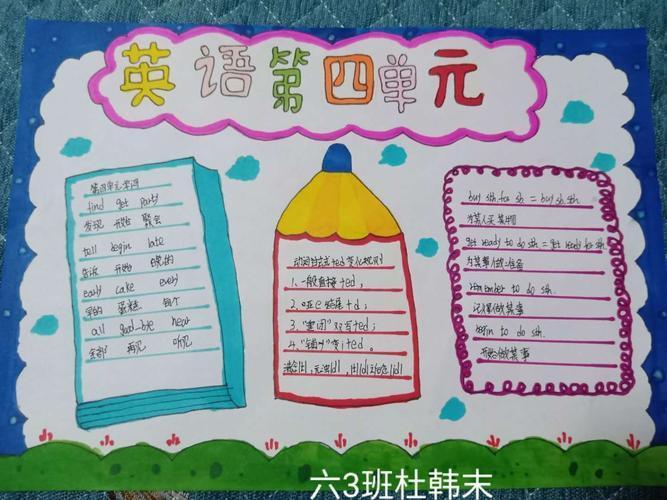 英语第四单元
第四单元单词
find get party
发现 开始 聚会
tell begin late
告诉 开始 晚的
early cake every
早的 蛋糕 每个
all good-bye hear
全部 再见 听见
动词过去式+ed变化规则
1.一般直接+ed,
2.以e结尾+d;
3."重闭"双写+ed;
4."辅y"变i+ed。
buy sth.for sb = buy sb.sth.
为某人买某物
get ready to do sth.= get ready for sth.
为某事做准备
remember to do sth.
记得做某事
begin to do sth.
开始做某事
六3班杜韩末